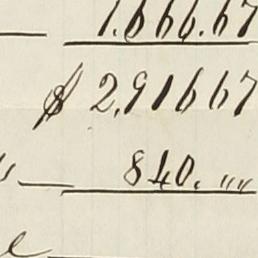 1.666.67
$ 2,916 67
" 840. „„